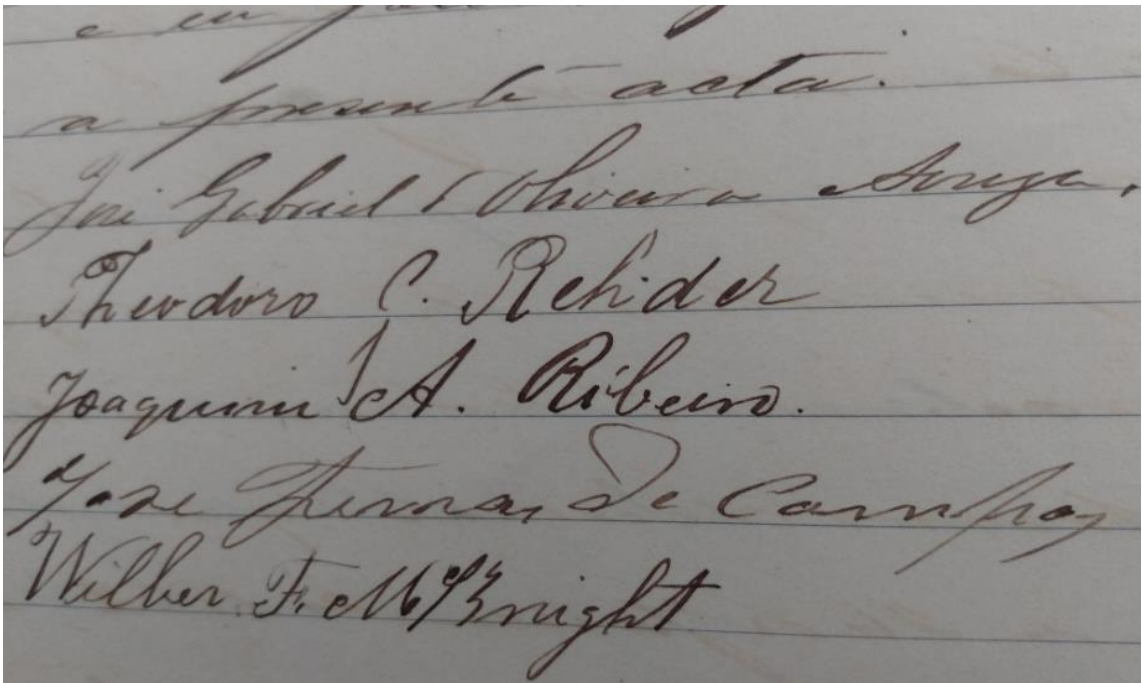 a presente acta.
José Gabriel d'Oliveira Souza,
Theodoro C. Rehider
Joaquim A. Ribeiro.
Jose Ferraz de Campos
Wilber F. McKnight